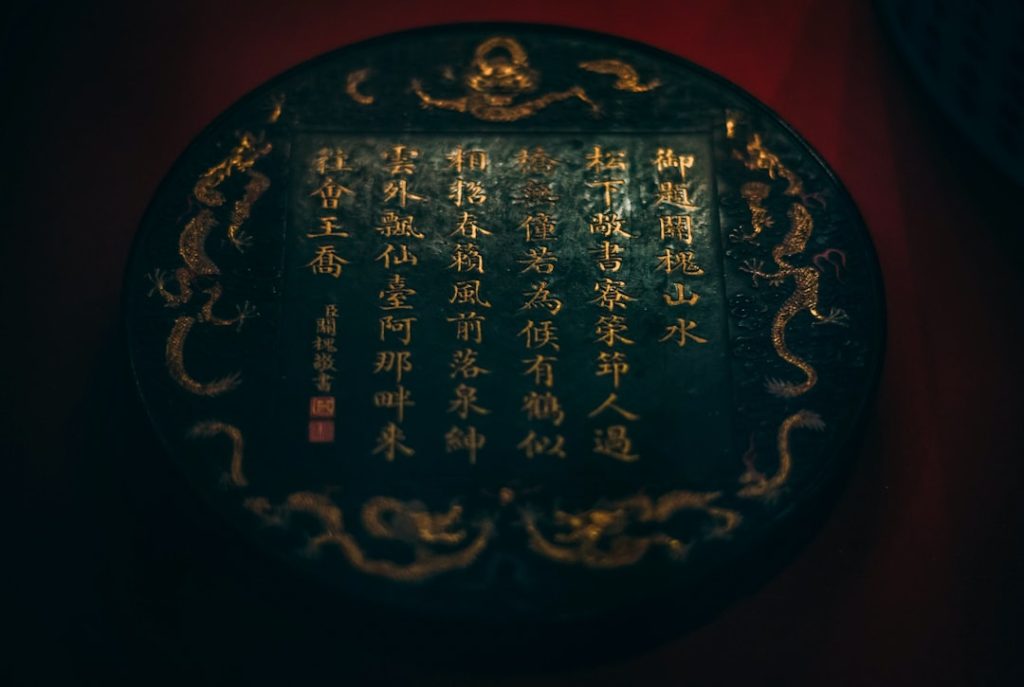 御題關槐山水
松下敞書寮荣笻人過
橋無僮若為候有鶴似
相招春籟風前落泉紳
雲外飄仙臺阿那畔来
往會王喬
臣關槐敬書